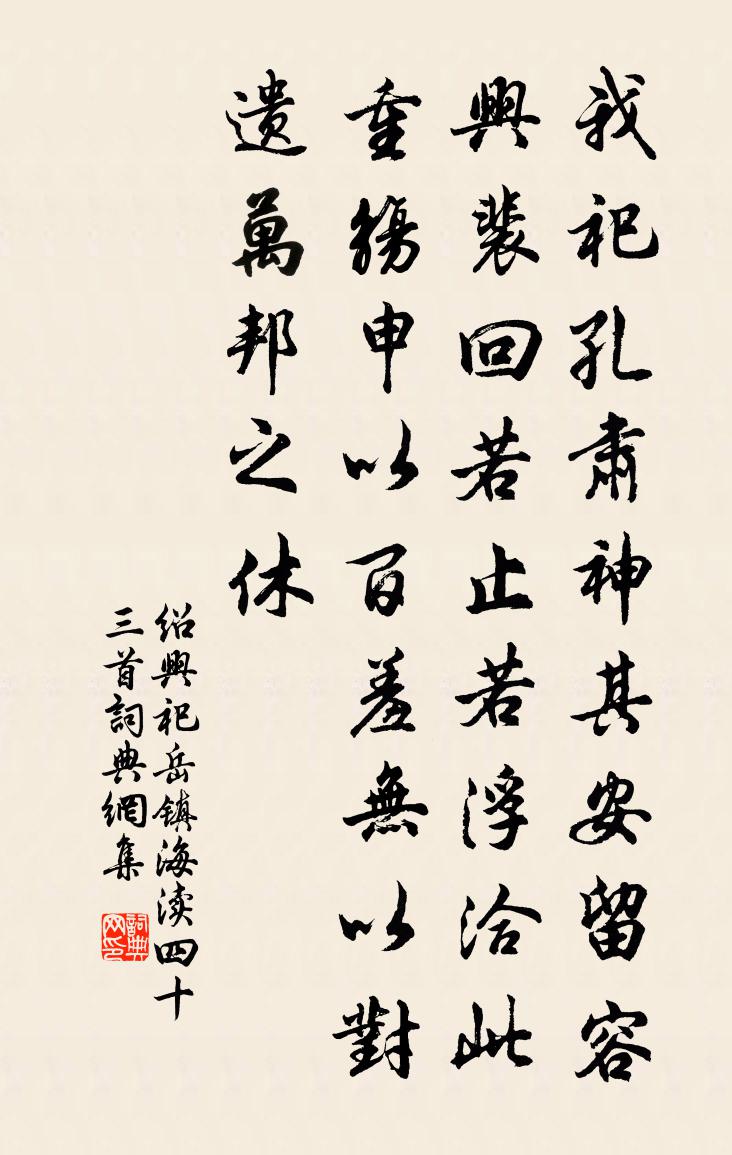 我祀孔肅神其安留容
與裴回若止若浮洽此
重觴申以百羞無以對
遺萬邦之休
紹興祀岳鎮海渎四十
三首詞典網集
詞典网印